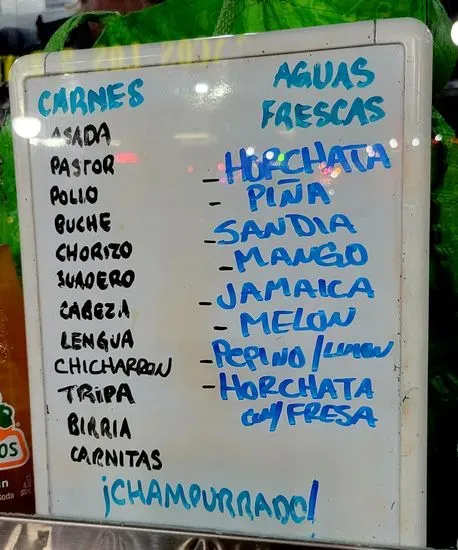 CARNES
ASADA
PASTOR
POLLO
BUCHE
CHORIZO
SUADERO
CABEZA
LENGUA
CHICHARRON
TRIPA
BIRRIA
CARNITAS
AGUAS
FRESCAS
- HORCHATA
- PIÑA
- SANDIA
- MANGO
- JAMAICA
- MELON
- PEPINO/LIMON
- HORCHATA
CON/FRESA
¡CHAMPURRADO!